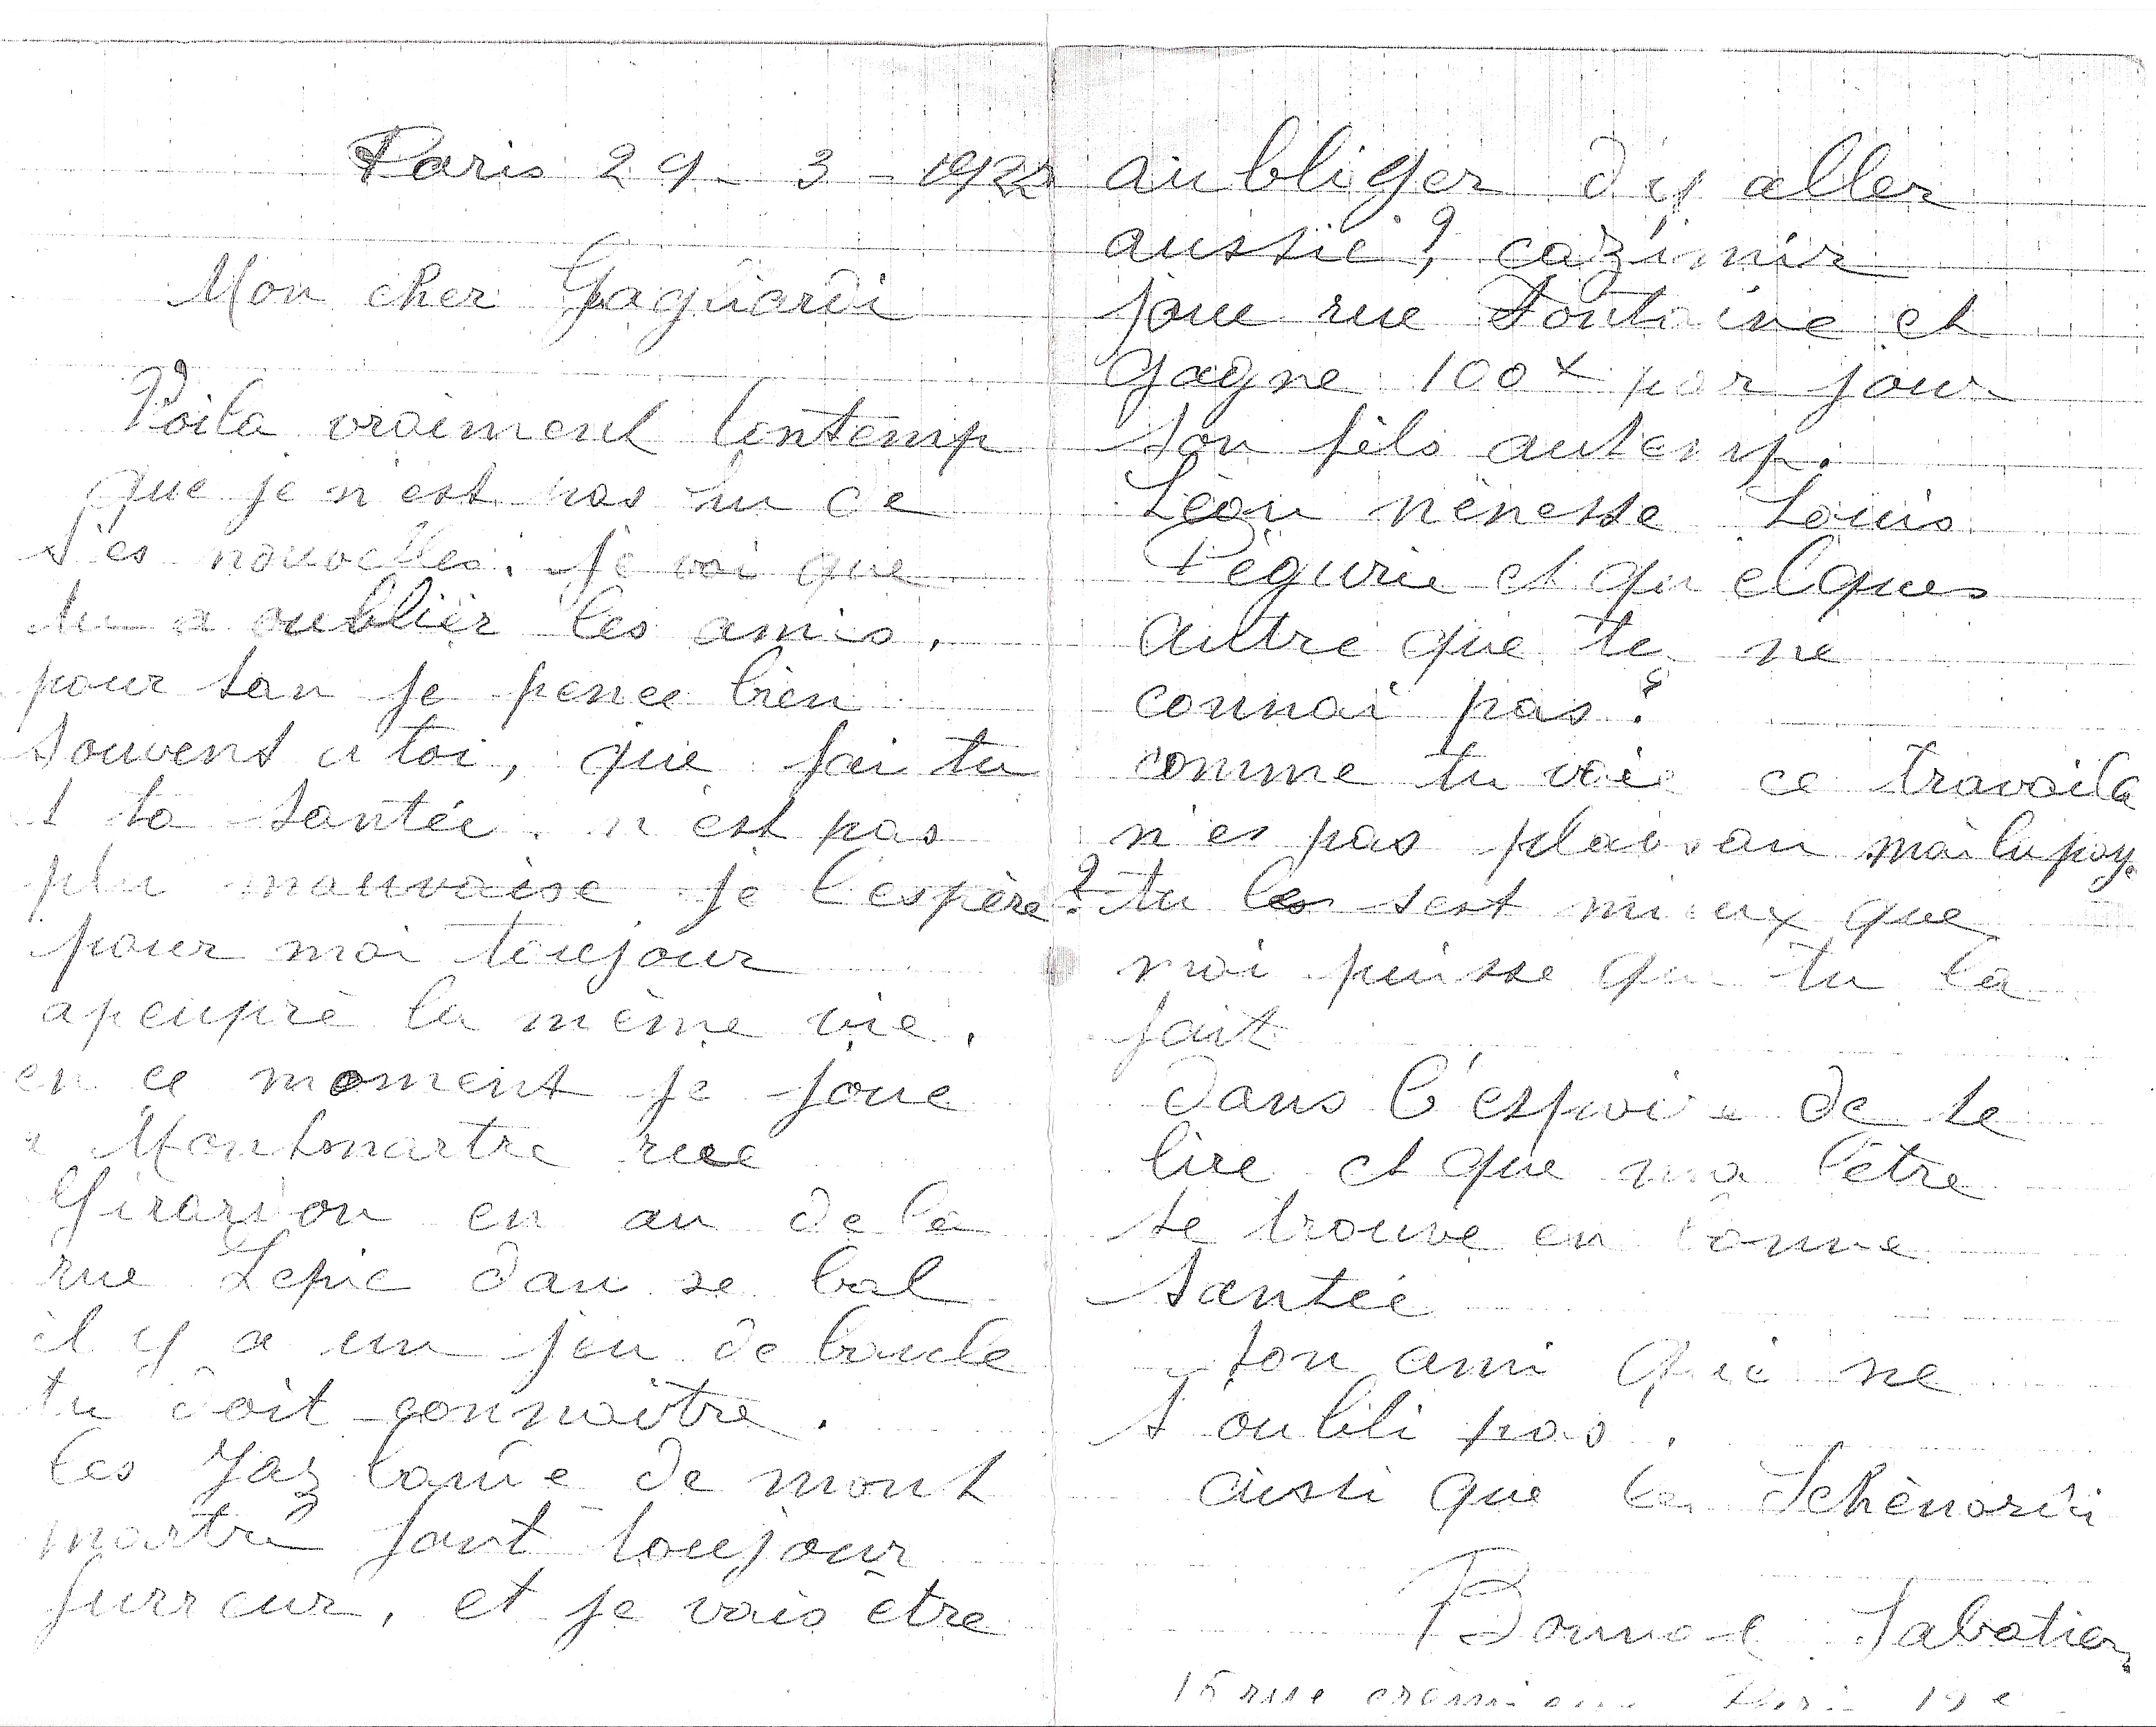 Paris 29 - 3 - 1922
Mon cher Gagliardi
Voila vraiment lontemp
que je n'est pas lu de
t'es nouvelles. je voi que
tu a oublier les amis.
pour tan je pence bien
souvent a toi, que fai tu
t ta santée. n'est pas
plu mauvaise je l'espère?
pour moi toujour
apeuprè la même vie.
en ce moment je joue
a Montmartre rue
Girardon en au de la
rue Lepic dan se bal
il y a un jeu de boule
tu doit connaitre.
les Jaz bande de mont
martre font toujour
furreur, et je vais être
aubliger d'y aller
aussie? cazimir
joue rue Fontaine et
gagne 100 par jour
son fils autemp.
Léon nénesse Louis
Pégurie et quelques
autre que tu ne
connai pas?
comme tu voie ce travaila
n'es pas plaisan mai lu pay.
tu les sest mieux que
moi puisse que tu la
fait
dans l'espoire de te
lire et que ma lètre
te trouve en bonne
santée
ton ami qui ne
t'oubli pas.
aissi que les Schènardi
Bonnal Sabatier
rue 19e